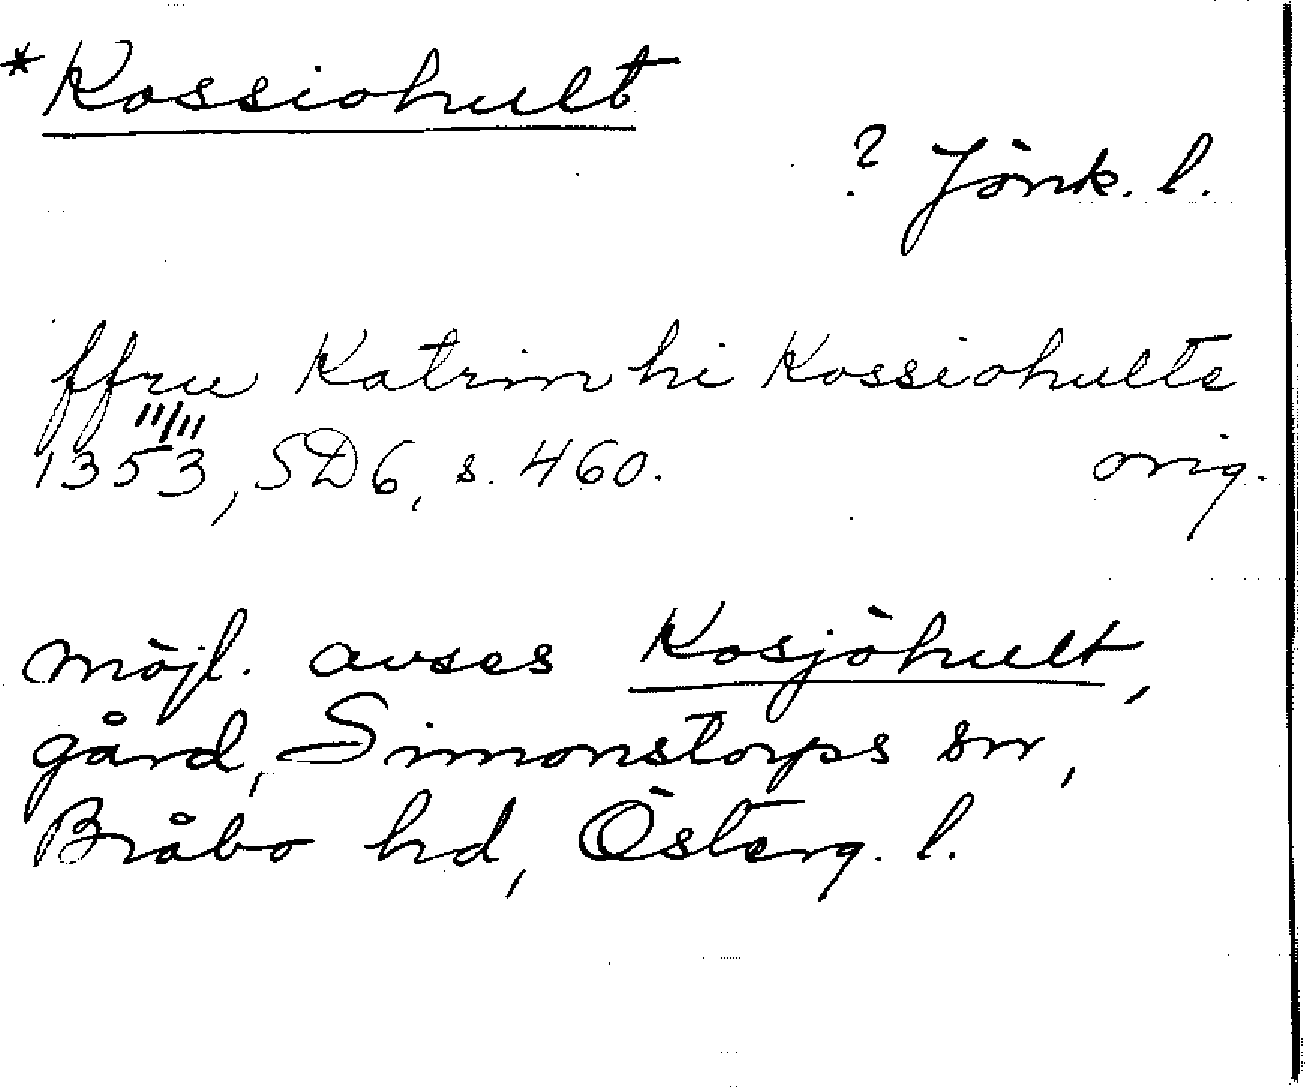 *Kossiohult
? Jönk. l.
ffru Katrim hi Kossiohulte
11/11
1353, SD6, s. 460. orig.
möjl. avses Kosjöhult,
gård, Simonstorps sn,
Bråbo hd, Österg. l.